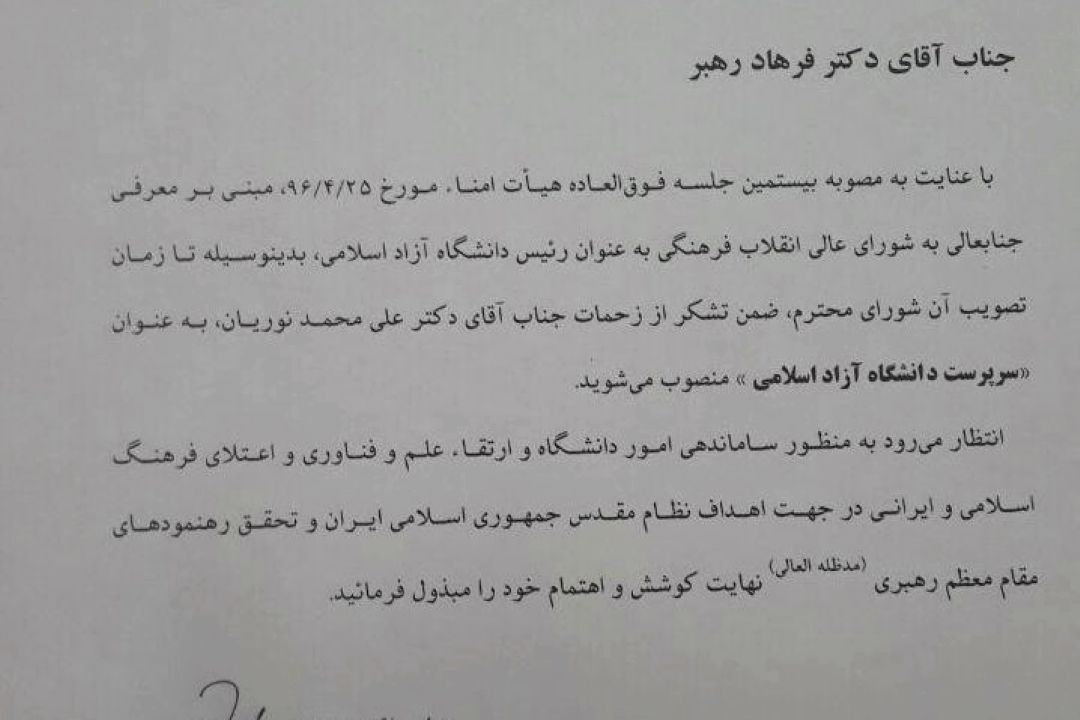 جناب آقای دکتر فرهاد رهبر
با عنایت به مصوبه بیستمین جلسه فوق‌العاده هیأت امناء مورخ ۹۶/۴/۲۵، مبنی بر معرفی
جنابعالی به شورای عالی انقلاب فرهنگی به عنوان رئیس دانشگاه آزاد اسلامی، بدینوسیله تا زمان
تصویب آن شورای محترم، ضمن تشکر از زحمات جناب آقای دکتر علی محمد نوریان، به عنوان
«سرپرست دانشگاه آزاد اسلامی » منصوب می‌شوید.
انتظار می‌رود به منظور ساماندهی امور دانشگاه و ارتقاء علم و فناوری و اعتلای فرهنگ
اسلامی و ایرانی در جهت اهداف نظام مقدس جمهوری اسلامی ایران و تحقق رهنمودهای
مقام معظم رهبری (مدظله العالی) نهایت کوشش و اهتمام خود را مبذول فرمائید.